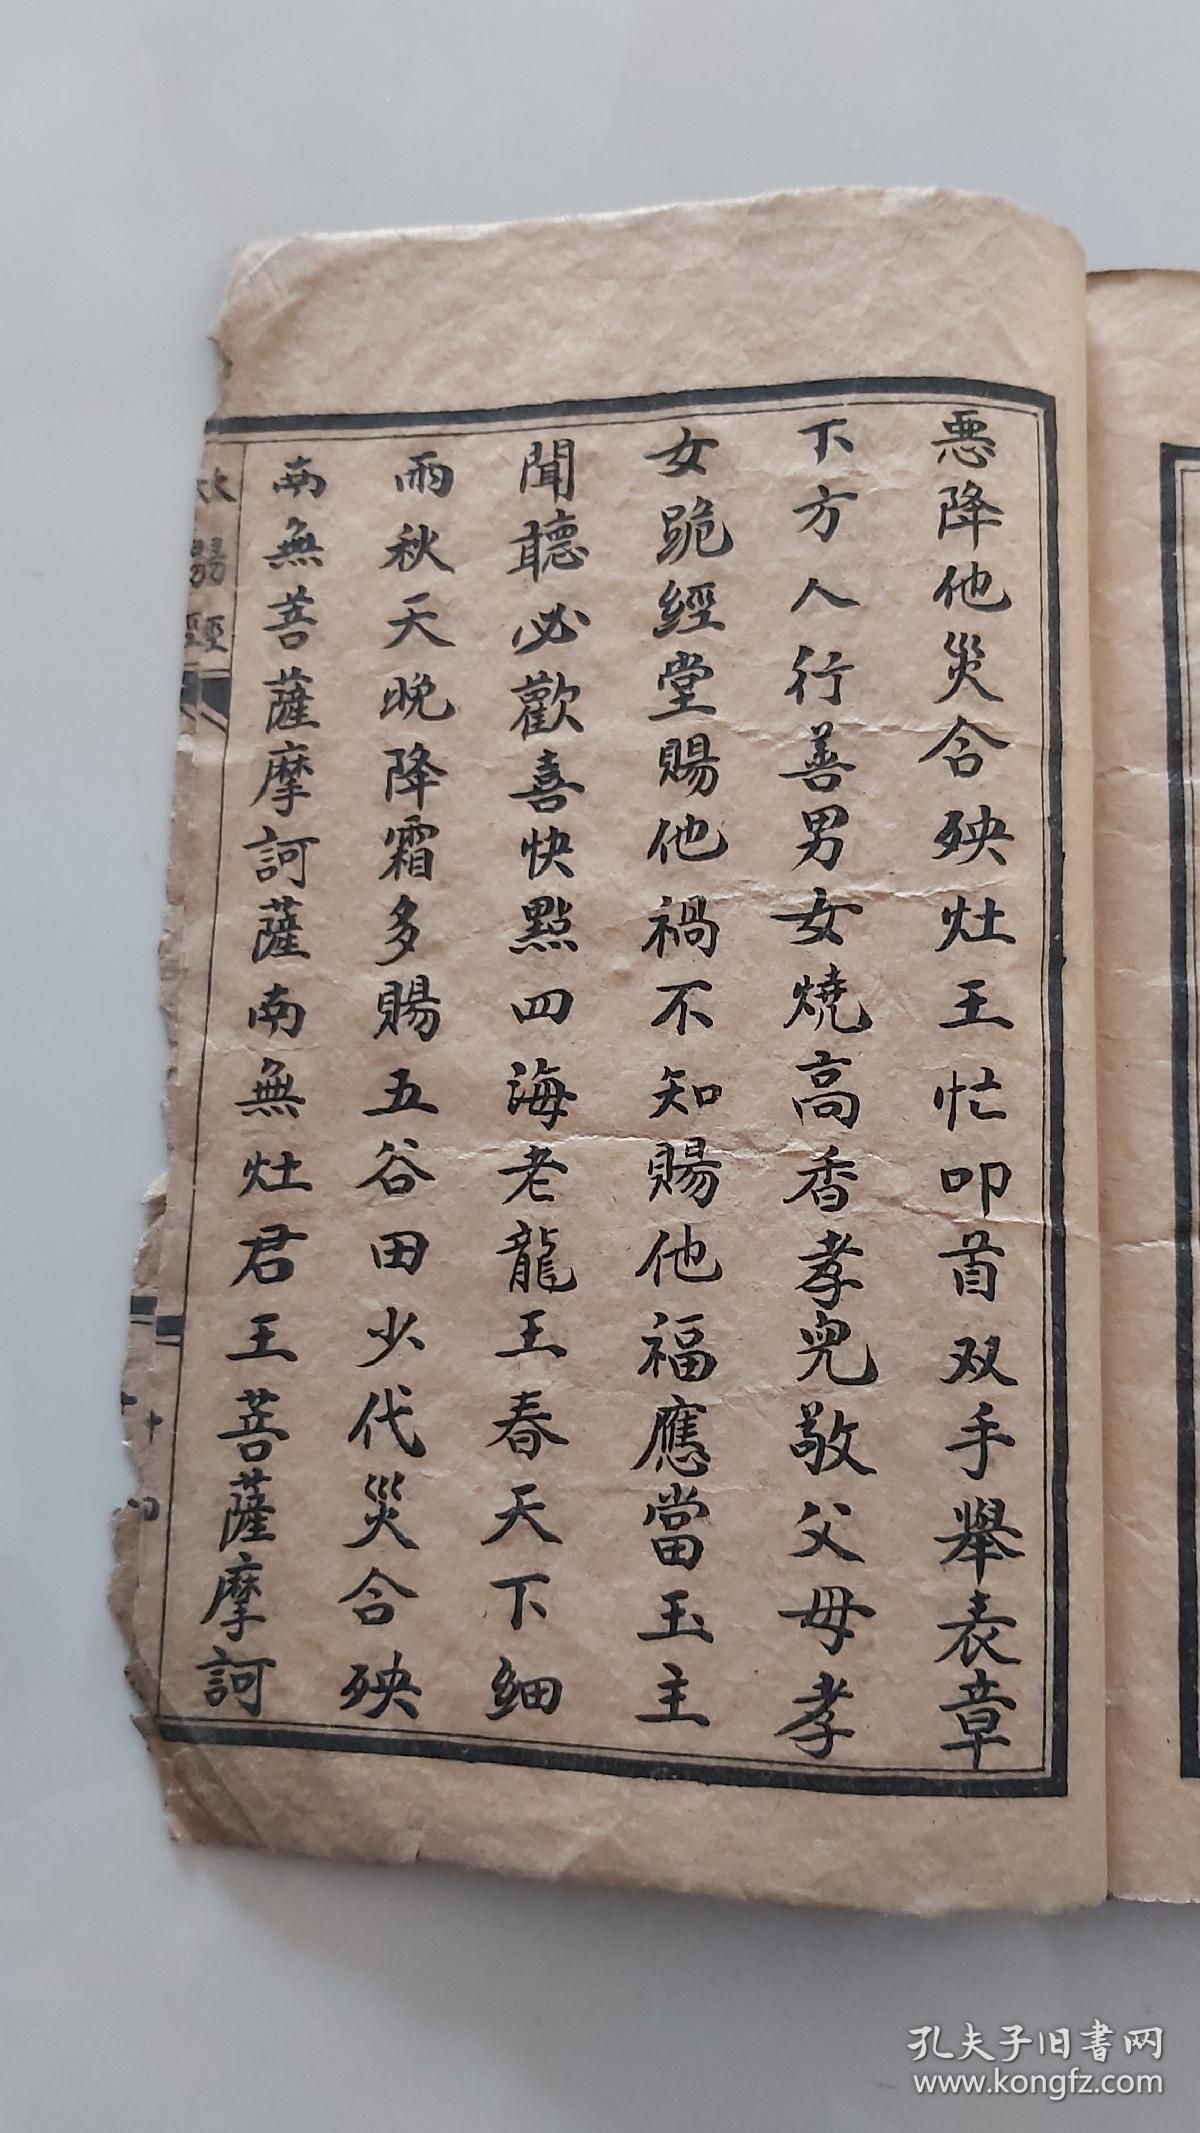 惡降他災合殃灶王忙叩首双手舉表章
下方人行善男女燒高香孝兒敬父母孝
女跪經堂賜他禍不知賜他福應當玉主
聞聽必歡喜快點四海老龍王春天下細
雨秋天晚降霜多賜五谷田少代災合殃
南無菩薩摩訶薩南無灶君王菩薩摩訶
孔夫子旧书网
www.kongfz.com